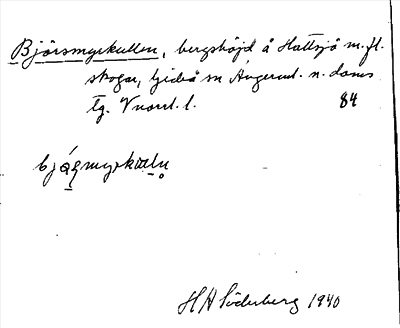 Björsmyrkullen, bergshöjd å Hattsjö m.fl.
skogar, Gideå sn Ångerml. n. doms
tg. Vnorrl. l. 84
H A Söderberg 1940